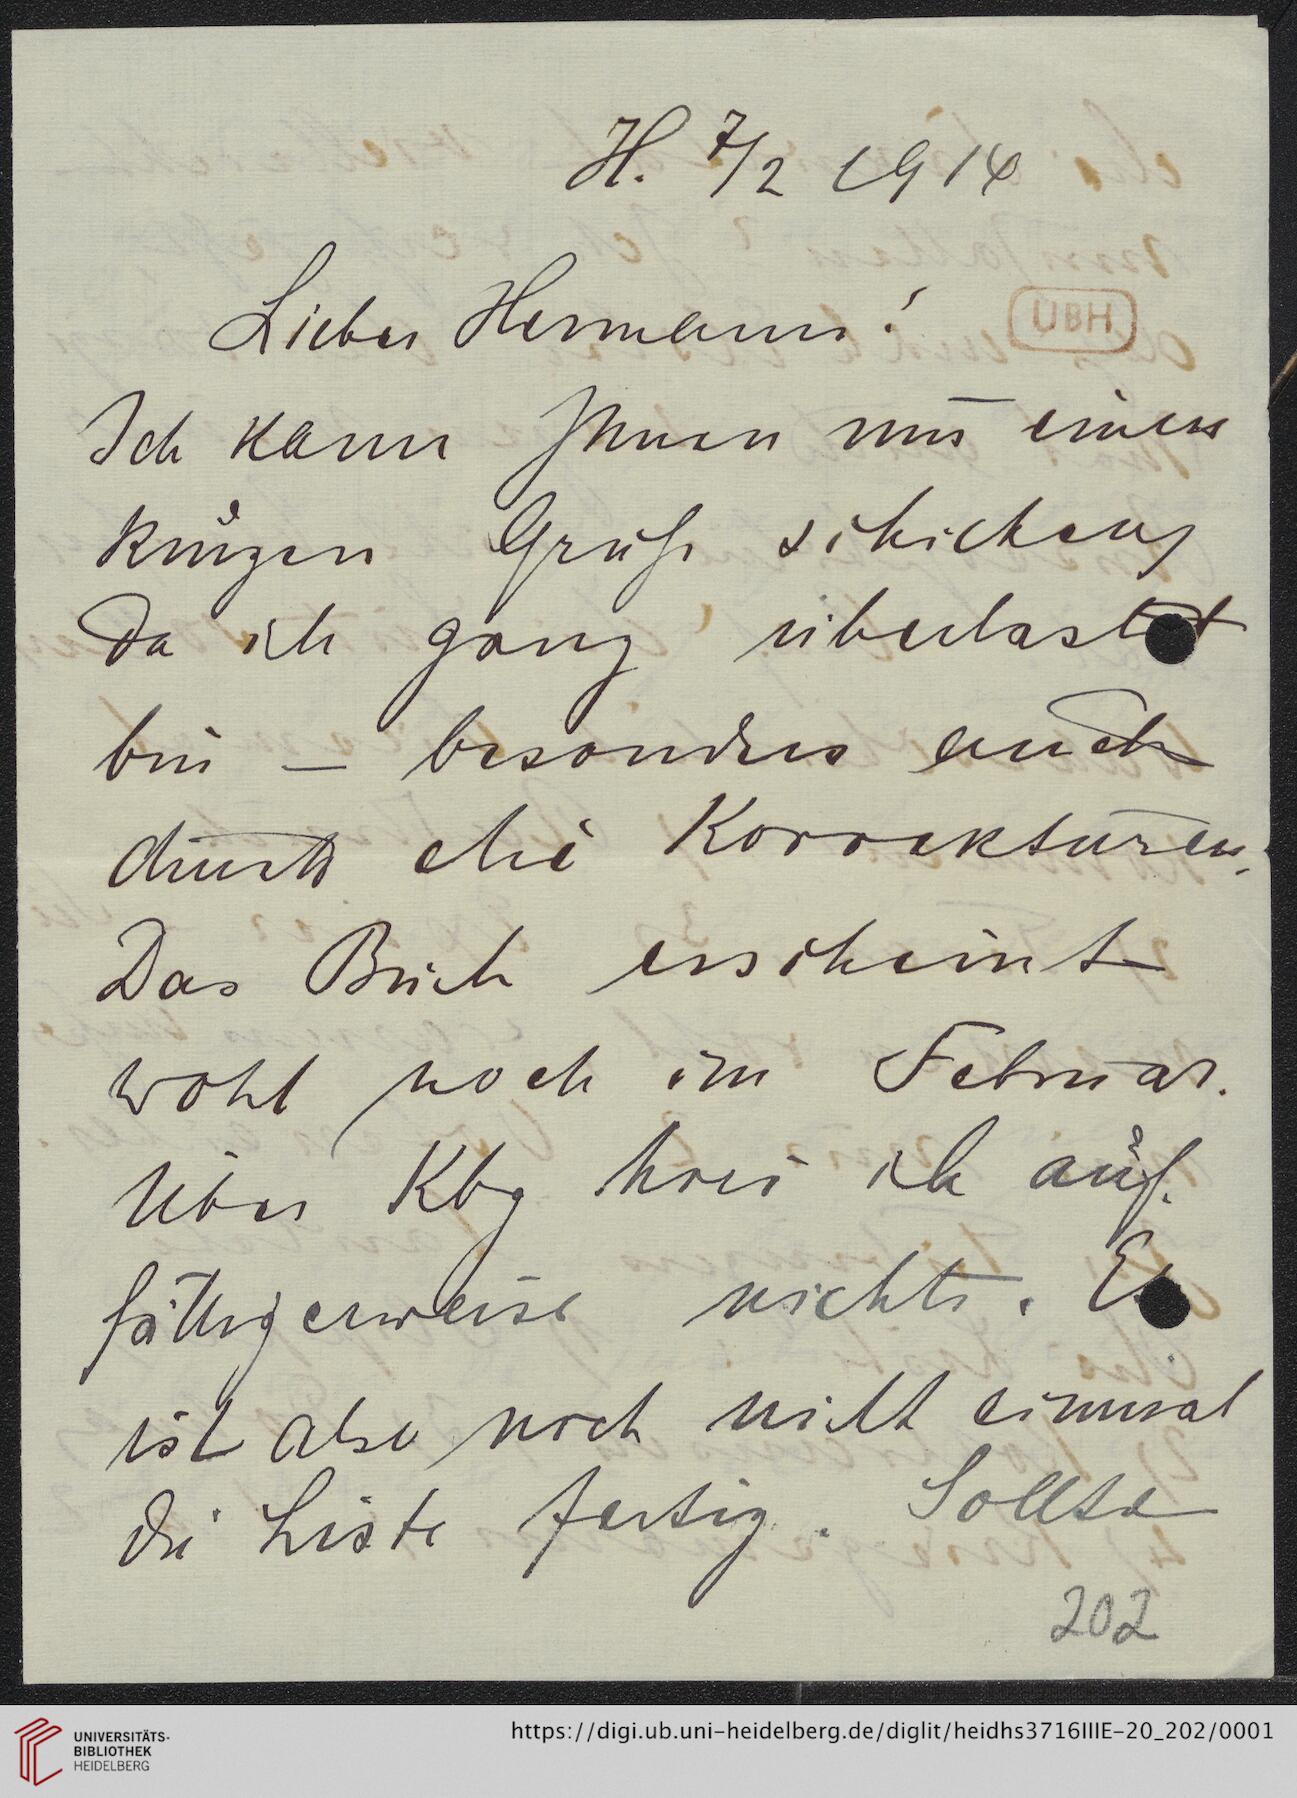 H. 7/2 1914
Lieber Hermann!
UBH
Ich kann Ihnen nur einen
kurzen Gruß schicken,
da ich ganz überlastet
bin – besonders auch
durch die Korrekturen.
Das Buch erscheint
wohl noch im Februar.
Über Kbg höre ich auf-
fälligerweise nichts. Es
ist also noch nicht einmal
die Liste fertig. Sollte
202
UNIVERSITÄTS-
BIBLIOTHEK
HEIDELBERG
https://digi.ub.uni-heidelberg.de/diglit/heidhs3716IIIE-20_202/0001